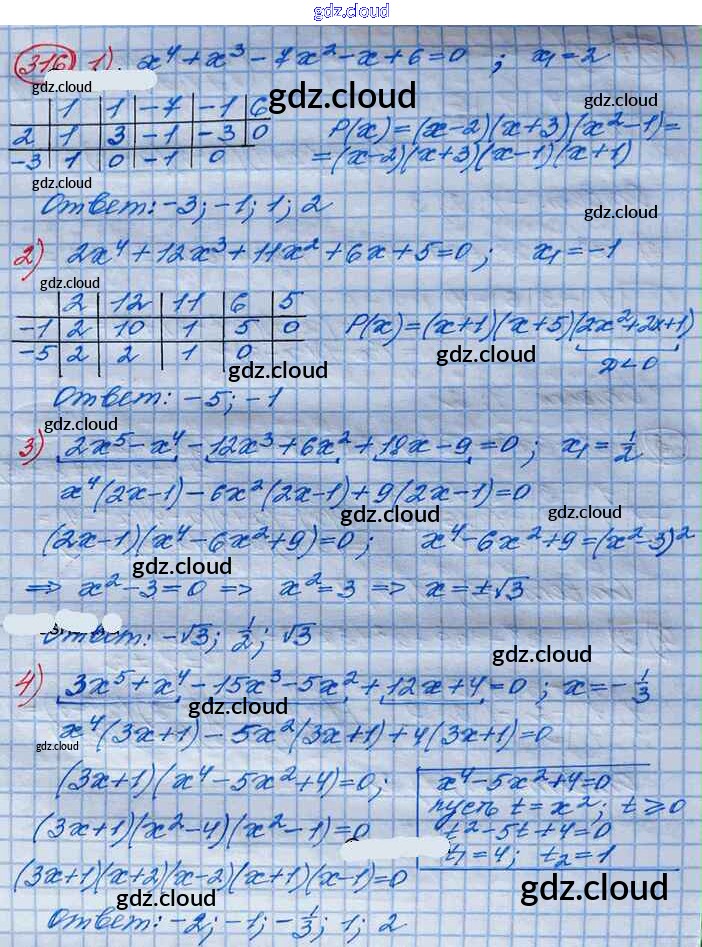 gdz.cloud
316 1) x⁴ + x³ - 7x² - x + 6 = 0 ; x₁ = 2
gdz.cloud gdz.cloud
1 1 -7 -1 6
2 1 3 -1 -3 0 P(x) = (x-2)(x+3)(x²-1) =
-3 1 0 -1 0 = (x-2)(x+3)(x-1)(x+1)
gdz.cloud
Ответ: -3; -1; 1; 2
gdz.cloud
2) 2x⁴ + 12x³ + 11x² + 6x + 5 = 0 ; x₁ = -1
gdz.cloud
2 12 11 6 5
-1 2 10 1 5 0 P(x) = (x+1)(x+5)(2x²+2x+1)
-5 2 2 1 0 D < 0
gdz.cloud gdz.cloud
Ответ: -5; -1
gdz.cloud
3) 2x⁵ - x⁴ - 12x³ + 6x² + 18x - 9 = 0 ; x₁ = 1/2
x⁴(2x-1) - 6x²(2x-1) + 9(2x-1) = 0
gdz.cloud gdz.cloud
(2x-1)(x⁴ - 6x² + 9) = 0 ; x⁴ - 6x² + 9 = (x²-3)²
gdz.cloud
=> x² - 3 = 0 => x² = 3 => x = ±√3
Ответ: -√3; 1/2; √3
gdz.cloud
4) 3x⁵ + x⁴ - 15x³ - 5x² + 12x + 4 = 0 ; x = -1/3
gdz.cloud
x⁴(3x+1) - 5x²(3x+1) + 4(3x+1) = 0
gdz.cloud
(3x+1)(x⁴ - 5x² + 4) = 0; x⁴ - 5x² + 4 = 0
пусть t = x² ; t ≥ 0
(3x+1)(x²-4)(x²-1) = 0 t² - 5t + 4 = 0
t₁ = 4; t₂ = 1
(3x+1)(x+2)(x-2)(x+1)(x-1) = 0
gdz.cloud
Ответ: -2; -1; -1/3; 1; 2